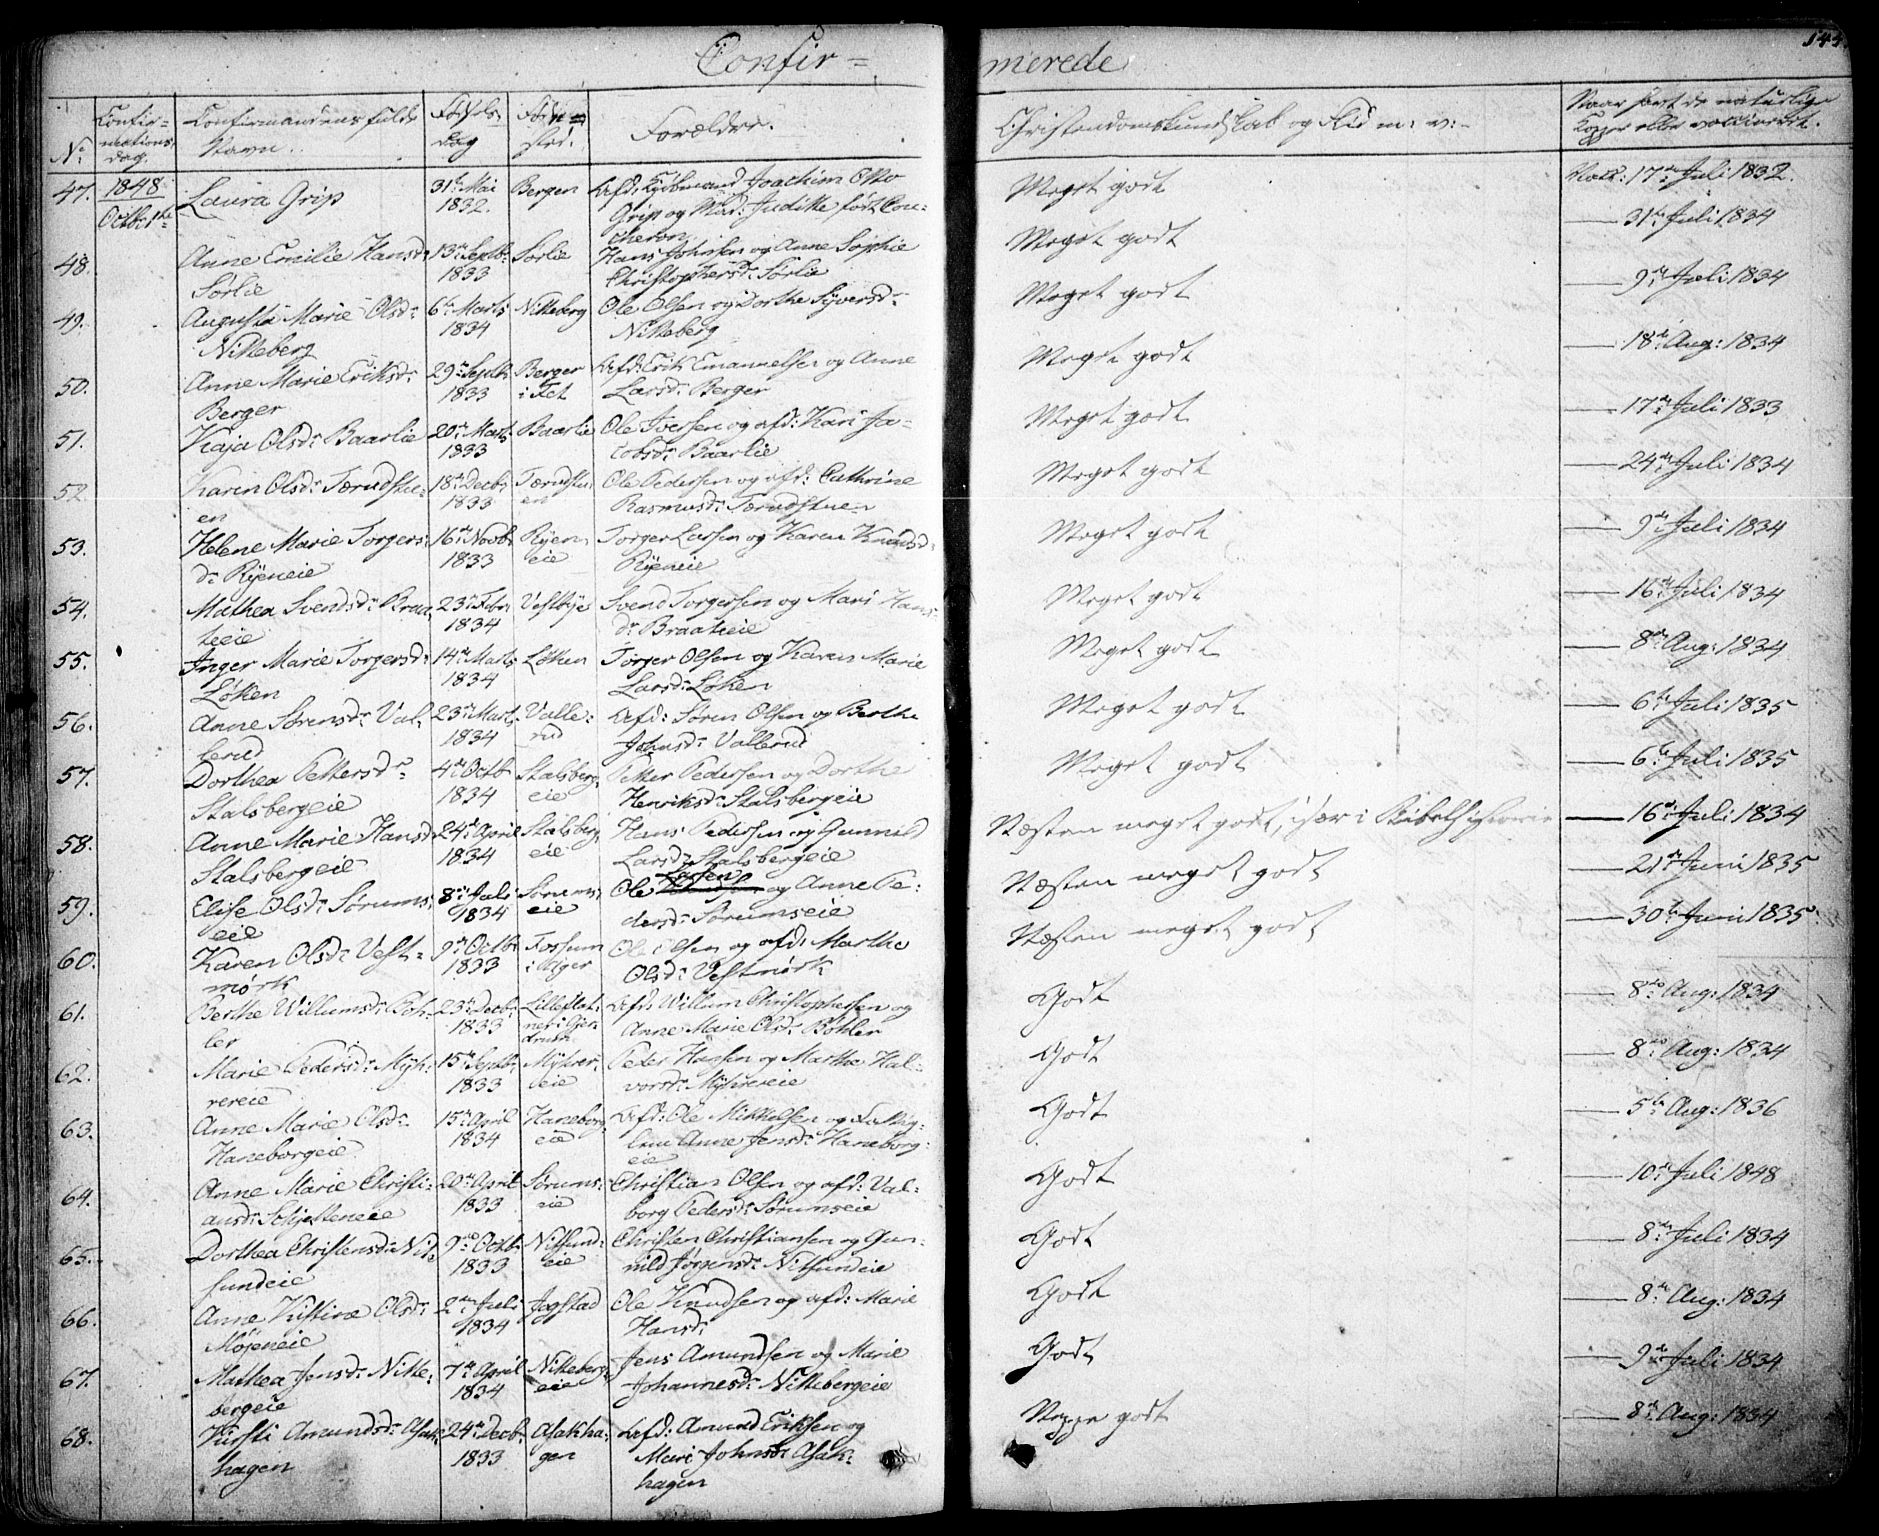 144.
Confir=merede
No. | Confir=mations dag. | Confirmandens fulde Navn. | Fødsels dag | Føde sted. | Forældre. | Christendomskundskab og Flid m: v:- | Naar havt de naturlige Kopper eller vaccineret.
47. | 1848 Octbr 1ste | Laura Grip | 31te Mai 1832. | Bergen | Afd: Kjøbmand Joachim Otto Grip og Mad: Judithe født Coucheron | Meget godt | Vacc: 17de Juli 1832.
48. | Anne Emilie Hansdr Sørlie | 13de Septbr 1833 | Sørlie | Hans Johnsen og Anne Sophie Christophersdr Sørlie | Meget godt | — 31te Juli 1834
49. | Augusta Marie Olsdr Nitteberg | 6te Marts 1834 | Nitteberg | Ole Olsen og Dorthe Syversdr Nitteberg | Meget godt | — 9de Juli 1834
50. | Anne Marie Eriksdr Berger | 29de Septbr 1833 | Berger i Fet | Afd: Erik Emanuelsen og Anne Larsdr Berger | Meget godt | — 18de Aug: 1834
51. | Kaja Olsdr Baarlie | 20de Marts 1833 | Baarlie | Ole Iversen og afd: Kari Jacobsdr Baarlie | Meget godt | — 17de Juli 1833
52. | Karen Olsdr Tærudstuen | 18de Decbr 1833 | Tærudstuen | Ole Pedersen og afd: Cathrine Rasmusdr Tærudstuen | Meget godt | — 24de Juli 1834
53. | Helene Marie Torgersdr Ryeneie | 16de Novbr 1833 | Ryeneie | Torger Larsen og Karen Knudsdr Ryeneie | Meget godt | — 9de Juli 1834
54. | Mathea Svendsdr Braateeie | 23de Febr 1834 | Vestbye | Svend Torgersen og Mari Hansdr Braateeie | Meget godt | — 16de Juli 1834
55. | Inger Marie Torgersdr Løken | 14de Marts 1834 | Løken | Torger Olsen og Karen Marie Larsdr Løken | Meget godt | — 8de Aug: 1834
56. | Anne Sørensdr Vallerud | 23de Marts 1834 | Vallerud | Afd: Søren Olsen og Berthe Johnsdr Vallerud | Meget godt | — 6te Juli 1835
57. | Dorthea Pettersdr Stalsbergeie | 4de Octbr 1834 | Stalsbergeie | Petter Pedersen og Dorthe Henriksdr Stalsbergeie | Meget godt | — 6te Juli 1835
58. | Anne Marie Hansdr Stalsbergeie | 24de April 1834 | Stalsbergeie | Hans Pedersen og Gunnild Larsdr Stalsbergeie | Næsten meget godt, især i Bibelhistorie | — 16de Juli 1834
59. | Elise Olsdr Sørumseie | 8de Juli 1834 | Sørumseie | Ole Larsen og Anne Pedersdr Sørumseie | Næsten meget godt | — 21de Juni 1835
60. | Karen Olsdr Vestmørk | 9de Octbr 1833 | Fossum i Aiger | Ole Olsen og afd: Marthe Olsdr Vestmørk | Næsten meget godt | — 30te Juni 1835
61. | Berthe Willumsdr Bøhler | 23de Decbr 1833 | | Afd: Willum Christophersen og Anne Marie Olsdr Bøhler | Godt | — 8de Aug: 1834
62. | Marie Pedersdr Myhrereie | 15de Septbr 1833 | Myhrereie | Peder Hansen og Marthe Halvorsdr Myhrereie | Godt | — 8de Aug: 1834
63. | Anne Marie Olsdr Haneborgeie | 15de April 1834 | Haneborgeie | Afd: Ole Mikkelsen og Fattiglem Anne Jensdr Haneborgeie | Godt | — 5te Aug: 1836
64. | Anne Marie Christiansdr Schjetteneie | 20de April 1833 | Sørumseie | Christian Olsen og afd: Valborg Pedersdr Sørumseie | Godt | — 10de Juli 1848
65. | Dorthea Christensdr Nitsundeie | 9de Octbr 1833 | Nitsundeie | Christen Christiansen og Gunild Jørgensdr Nitsundeie | Godt | — 8de Juli 1834
66. | Anne Kistine Olsdr Møjeneie | 2den Juli 1834 | Jogstad | Ole Knudsen og afd: Marie Hansdr | Godt | — 8de Aug: 1834
67. | Mathea Jensdr Nittebergeie | 7de April 1834 | Nittebergeie | Jens Amundsen og Marie Johannesdr Nittebergeie | Godt | — 9de Juli 1834
68. | Kirsti Amundsdr Asakhagen | 24de Decbr 1833 | Asakhagen | Afd: Amund Eriksen og Mari Johnsdr Asakhagen | Neppe godt | — 8de Aug: 1834